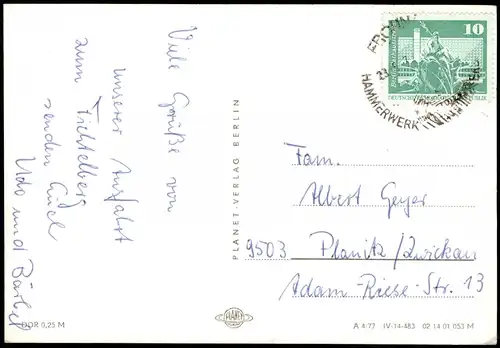 Viele Grüße von
unserer Ausfahrt
zum Fichtelberg
senden Euch
Udo und Bärbel
DDR 0,25 M
PLANET-VERLAG BERLIN
PLANET
10
HAMMERWERK
Fam.
Albert Geyer
9503 Planitz/Zwickau
Adam-Riese-Str. 13
A 4/77 IV-14-483 02 14 01 053 M